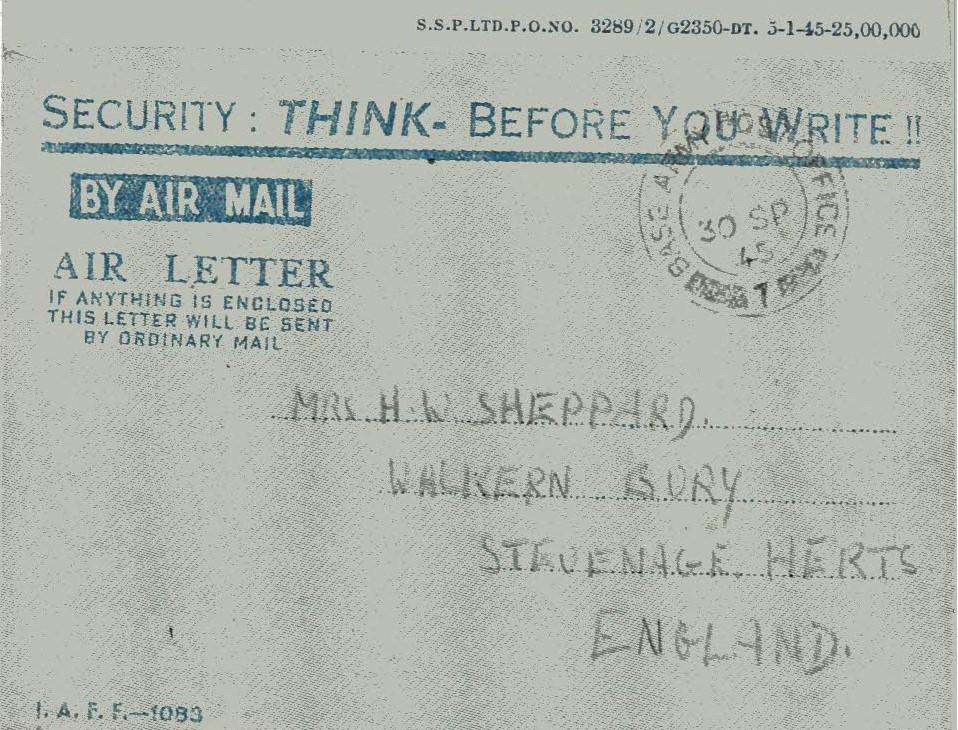 S.S.P.LTD.P.O.NO. 3289/2/G2350-DT. 5-1-45-25,00,000
SECURITY : THINK- BEFORE YOU WRITE !!
BY AIR MAIL
BASE ARMY POST OFFICE
30 SP
45
7
AIR LETTER
IF ANYTHING IS ENCLOSED
THIS LETTER WILL BE SENT
BY ORDINARY MAIL
MRS H.W SHEPPARD.
WALKERN BURY
STEVENAGE. HERTS
ENGLAND.
I. A. F. F.—1083